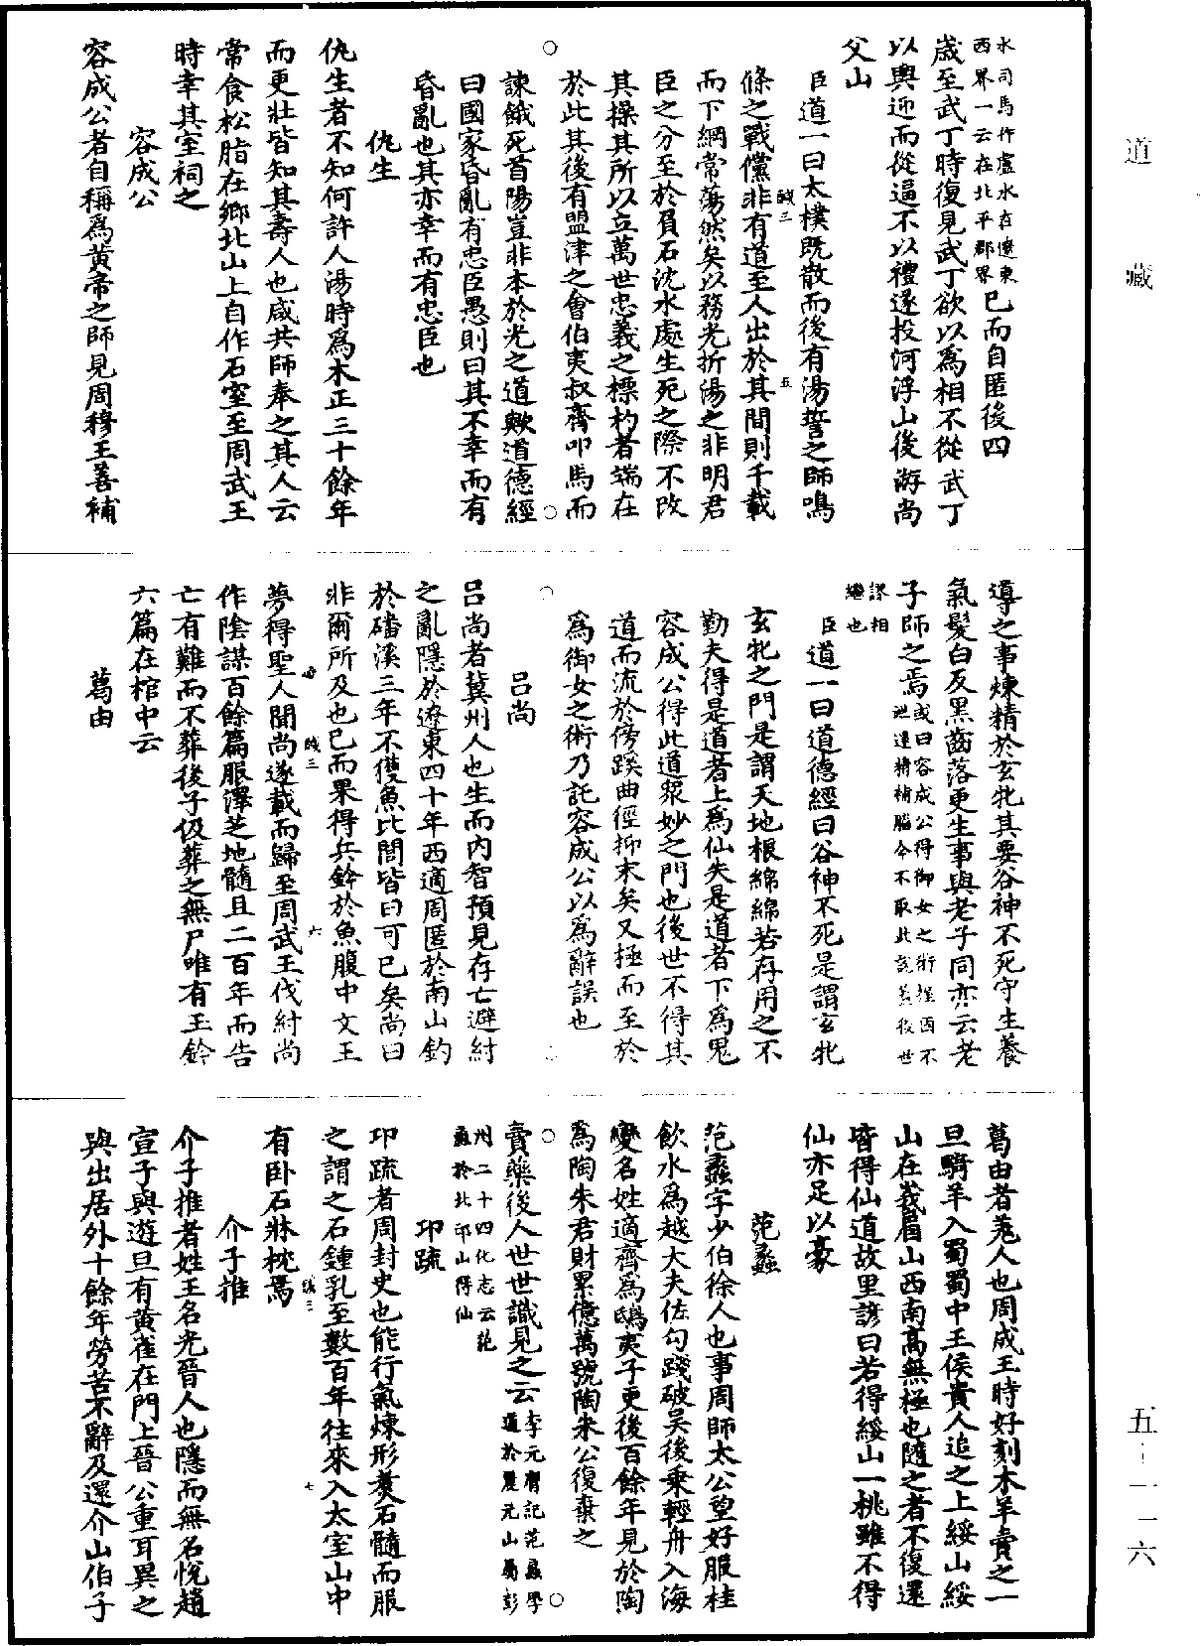 道藏
五―一一六
水司馬作盧水在遼東
西界一云在北平郡界
已而自匿後四
歲至武丁時復見武丁欲以爲相不從武丁
以輿迎而從逼不以禮遂投河浮山後游尚
父山
臣道一曰太樸既散而後有湯誓之師鳴
條之戰儻非有道至人出於其間則千載
而下綱常蕩然矣以務光折湯之非明君
臣之分至於負石沈水處生死之際不改
其操其所以立萬世忠義之標杓者端在
於此其後有盟津之會伯夷叔齊叩馬而
諫餓死首陽豈非本於光之道歟道德經
曰國家昏亂有忠臣愚則曰其不幸而有
昏亂也其亦幸而有忠臣也
仇生
仇生者不知何許人湯時爲木正三十餘年
而更壯皆知其壽人也咸共師奉之其人云
常食松脂在鄉北山上自作石室至周武王
時幸其室祠之
容成公
容成公者自稱爲黃帝之師見周穆王善補
導之事煉精於玄牝其要谷神不死守生養
氣髮白反黑齒落更生事與老子同亦云老
子師之焉
或曰容成公得御女之術握固不
泄還精補腦今不取此說蓋後世
謬相
繼也
臣道一曰道德經曰谷神不死是謂玄牝
玄牝之門是謂天地根綿綿若存用之不
勤夫得是道者上爲仙失是道者下爲鬼
容成公得此道衆妙之門也後世不得其
道而流於傍蹊曲徑抑末矣又極而至於
爲御女之術乃託容成公以爲辭誤也
呂尚
呂尚者冀州人也生而内智預見存亡避紂
之亂隱於遼東四十年西適周匿於南山釣
於磻溪三年不獲魚比閭皆曰可已矣尚曰
非爾所及也已而果得兵鈐於魚腹中文王
夢得聖人聞尚遂載而歸至周武王伐紂尚
作陰謀百餘篇服澤芝地髓且二百年而告
亡有難而不葬後子伋葬之無尸唯有玉鈐
六篇在棺中云
葛由
葛由者羌人也周成王時好刻木羊賣之一
旦騎羊入蜀蜀中王侯貴人追之上綏山綏
山在峩眉山西南高無極也隨之者不復還
皆得仙道故里諺曰若得綏山一桃雖不得
仙亦足以豪
范蠡
范蠡字少伯徐人也事周師太公望好服桂
飲水爲越大夫佐勾踐破吳後乘輕舟入海
變名姓適齊爲鴟夷子更後百餘年見於陶
爲陶朱君財累億萬號陶朱公復棄之
賣藥後人世世識見之云
李元膺記范蠡學
道於嚴元山屬彭
州二十四化志云范
蠡於北邙山得仙
卭疏
卭疏者周封史也能行氣煉形煑石髓而服
之謂之石鍾乳至數百年往來入太室山中
有卧石牀枕焉
介子推
介子推者姓王名光晉人也隱而無名悅趙
宣子與遊旦有黃雀在門上晉公重耳異之
與出居外十餘年勞苦不辭及還介山伯子